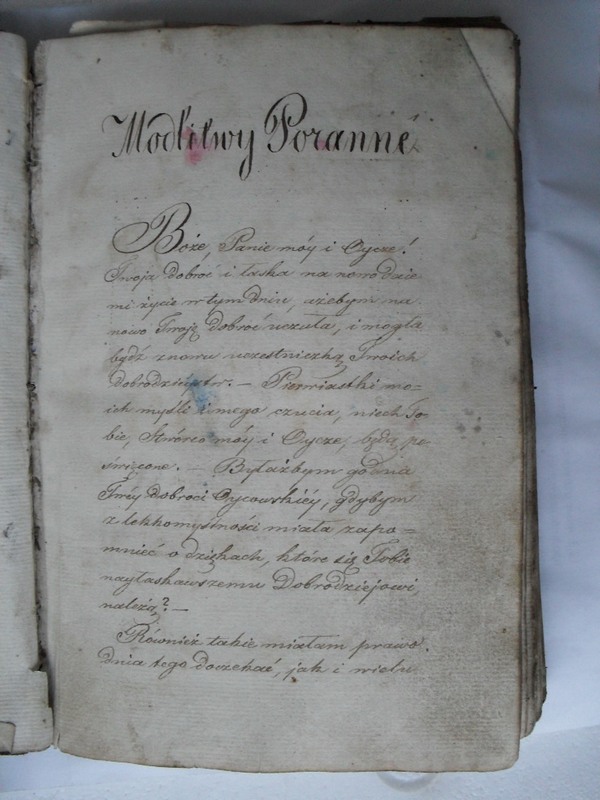 Modlitwy Poranne.
Boże, Panie móy i Oycze!
Twoja dobroć i łaska na nowo daie
mi życie w tym dniu, ażebym na
nowo Twoję dobroć uczuła, i mogła
bydź znowu uczestniczką Twoich
dobrodzieystw. — Pierwiastki mo=
ich myśli i mego czucia, niech To=
bie, Stwórco móy i Oycze, będą po=
święcone. — Byłażbym godna
Twéy dobroci Oycowskiéy, gdybym
z lekkomyślności miała zapo=
mnieć o dziękach, które się Tobie
nayłaskawszemu Dobrodziejowi,
należą? —
Również takie miałam prawo
dnia tego doczekać, jak i wielu